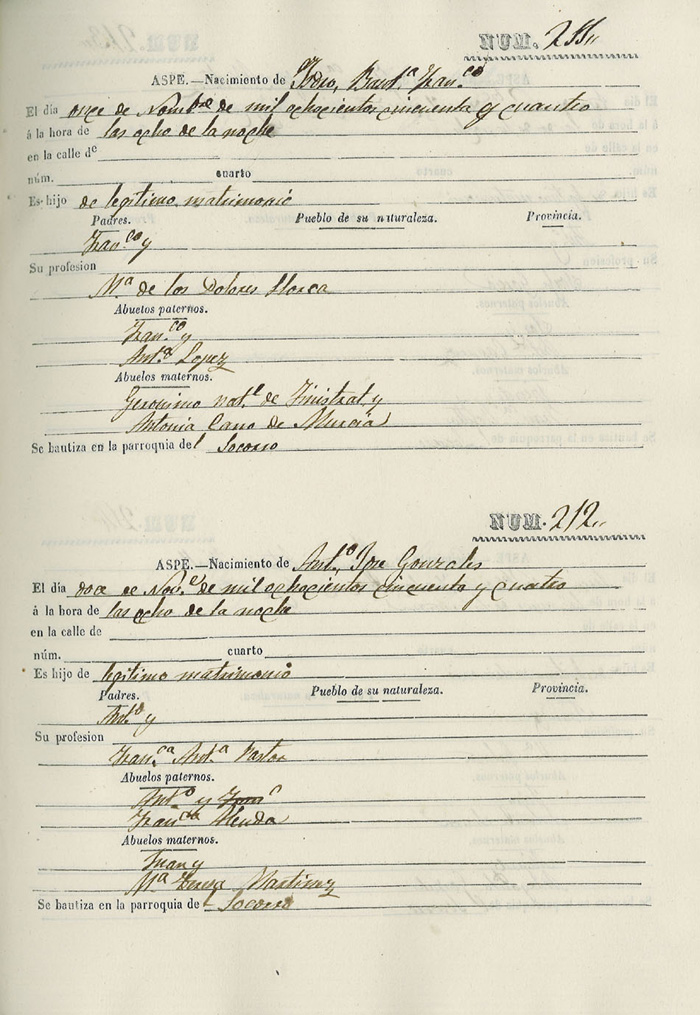 NUM. 211
ASPE.—Nacimiento de Baut.ª Fran.co
El día once de Nombre de mil ochocientos cincuenta y cuatro
á la hora de las ocho de la noche
en la calle de
núm. cuarto
Es hijo de legitimo matrimonio
Padres. Pueblo de su naturaleza. Provincia.
Fran.co y
Su profesion
M.ª de los Dolores Llorca
Abuelos paternos.
Fran.co y
Ant.ª Lopez
Abuelos maternos.
Geronimo nat.l de Finistrat y
Antonia Cano de Murcia
Se bautiza en la parroquia del Socorro
NUM. 212
ASPE.—Nacimiento de Ant.o Jose Gonzales
El día doce de Nov.e de mil ochocientos cincuenta y cuatro
á la hora de las ocho de la noche
en la calle de
núm. cuarto
Es hijo de legitimo matrimonio
Padres. Pueblo de su naturaleza. Provincia.
Ant.o y
Su profesion
Fran.ca Ant.ª Pastor
Abuelos paternos.
Ant.o y
Fran.ca
Abuelos maternos.
Juan y
M.ª Teresa Martinez
Se bautiza en la parroquia de l Socorro